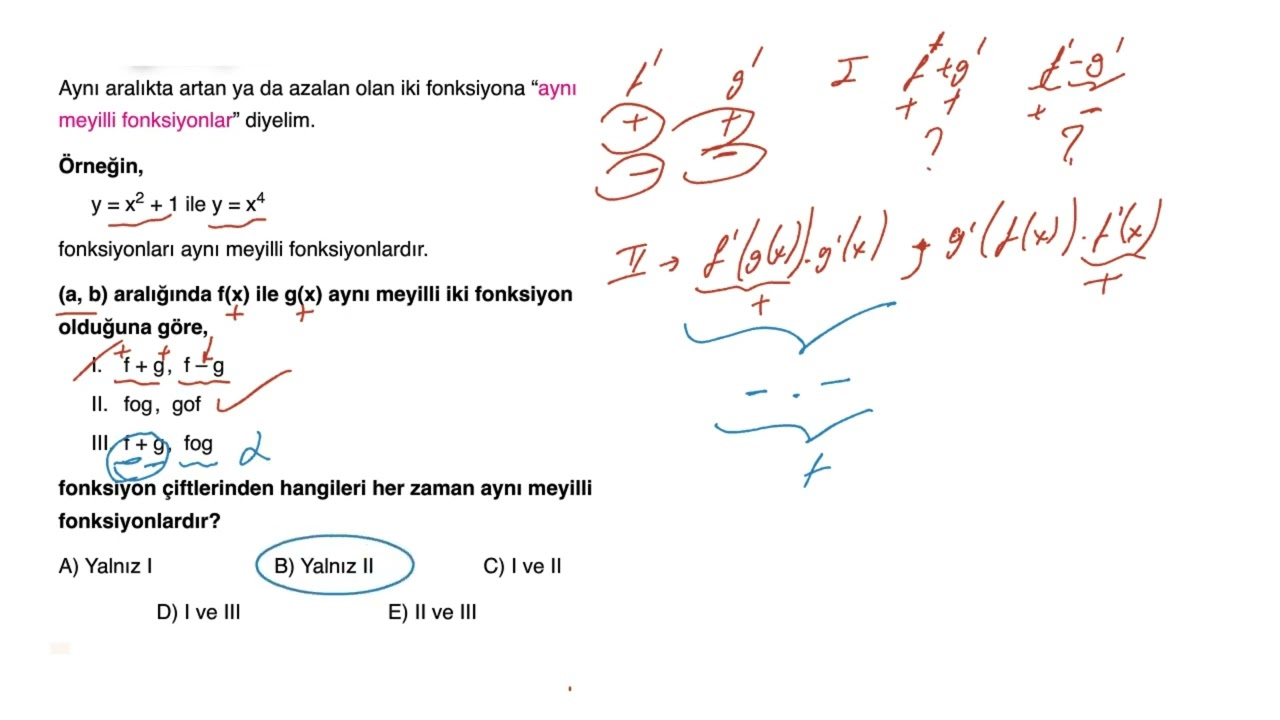 Aynı aralıkta artan ya da azalan olan iki fonksiyona “aynı
meyilli fonksiyonlar” diyelim.
Örneğin,
y = x² + 1 ile y = x⁴
fonksiyonları aynı meyilli fonksiyonlardır.
(a, b) aralığında f(x) ile g(x) aynı meyilli iki fonksiyon
+ +
olduğuna göre,
I. f + g, f – g
II. fog, gof
III. f + g, fog
fonksiyon çiftlerinden hangileri her zaman aynı meyilli
fonksiyonlardır?
A) Yalnız I B) Yalnız II C) I ve II
D) I ve III E) II ve III
f' g'
+ +
– –
I f'+g' f'-g'
+ + + –
? ?
II → f'(g(x)).g'(x) , g'(f(x)).f'(x)
+ +
– . –
+